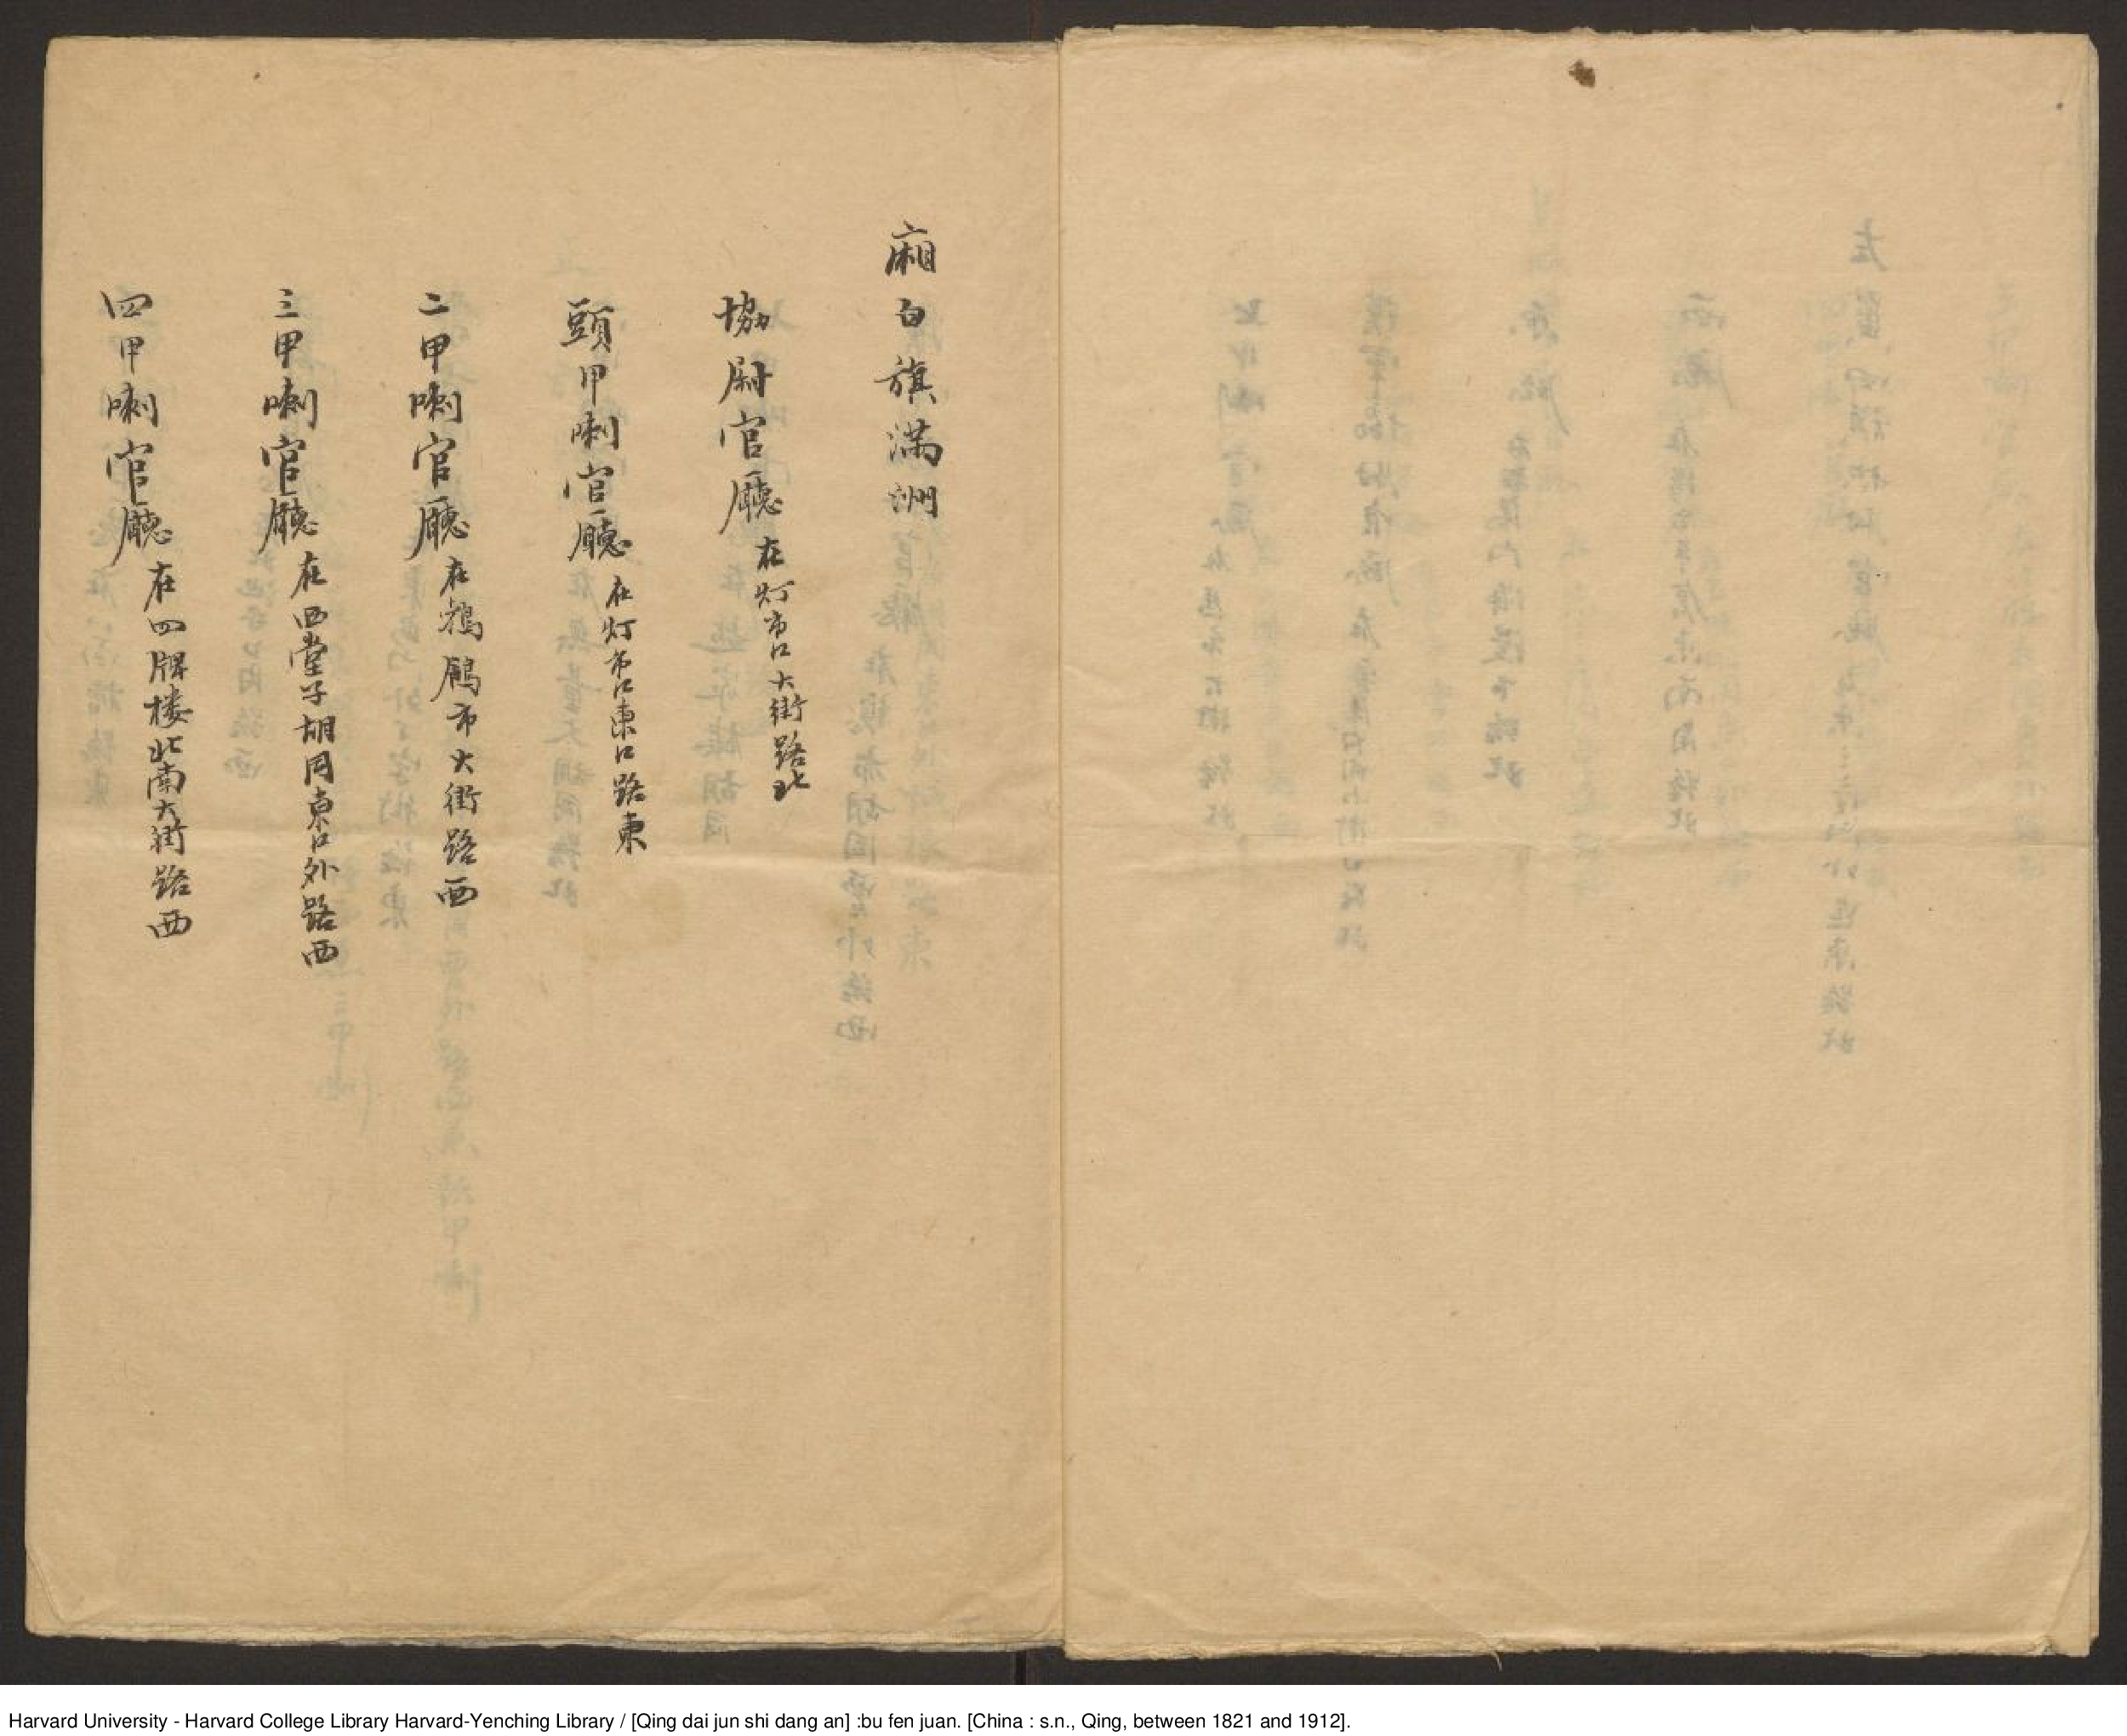 廂白旗滿洲
協尉官廳 在灯市口大街路北
頭甲喇官廳 在灯市口東口路東
二甲喇官廳 在鵓鴿市大街路西
三甲喇官廳 在西堂子胡同東口外路西
四甲喇官廳 在四牌楼北南大街路西
Harvard University - Harvard College Library Harvard-Yenching Library / [Qing dai jun shi dang an] :bu fen juan. [China : s.n., Qing, between 1821 and 1912].